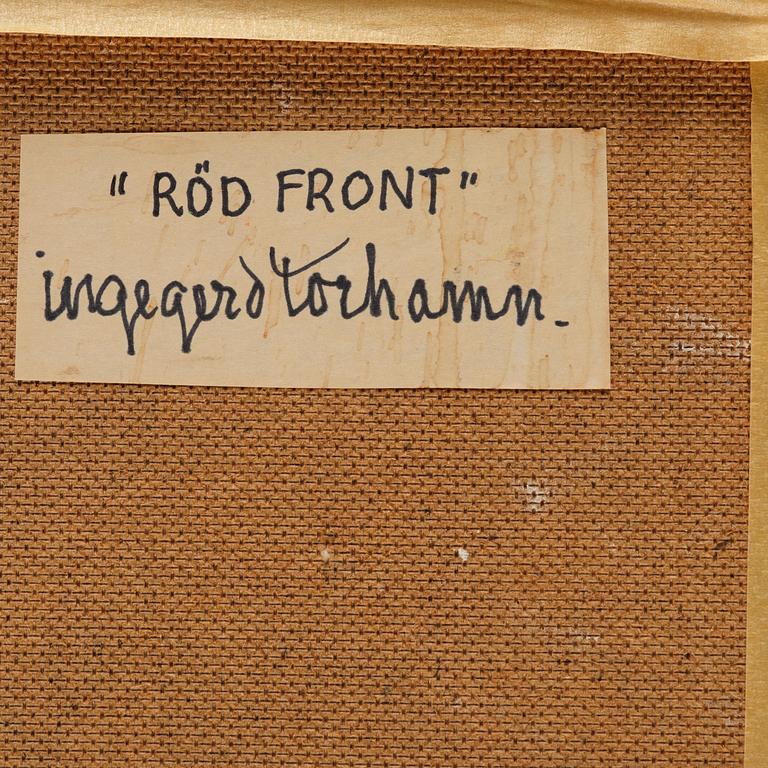 " RÖD FRONT"
ingegerd torhamn.